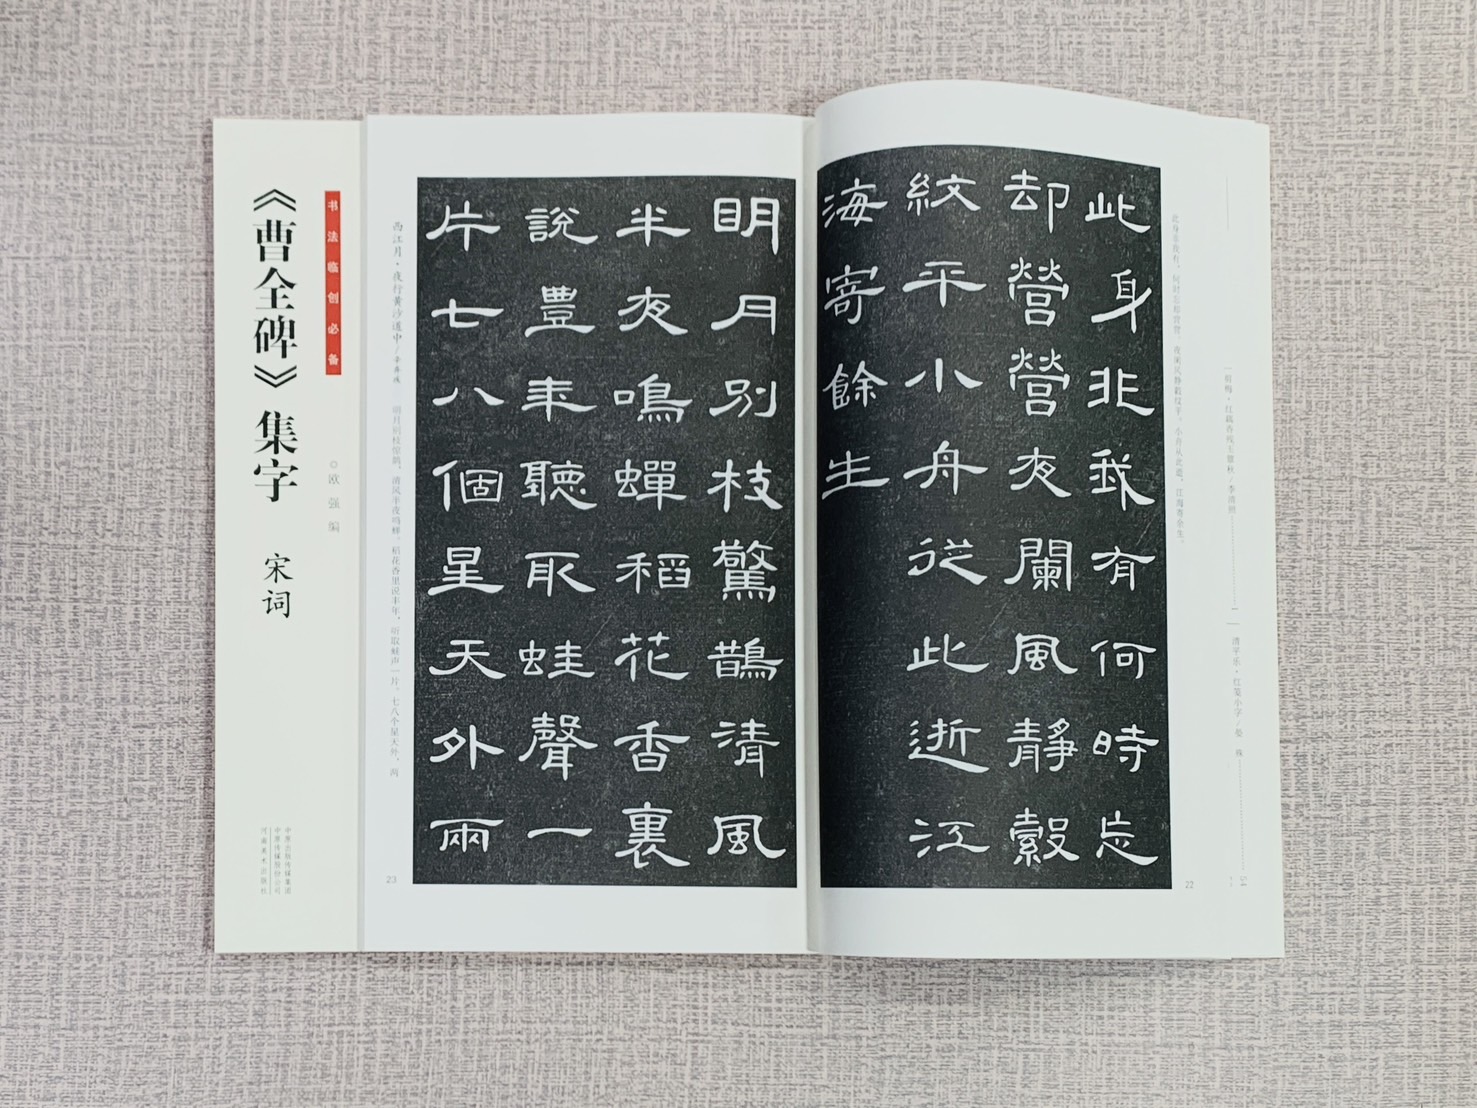 一剪梅·红藕香残玉簟秋/李清照
清平乐·红笺小字/晏 殊 54
此身非我有，何时忘却营营。夜阑风静縠纹平。小舟从此逝，江海寄余生。
此身非我有何時忘
却營營夜闌風靜縠
紋平小舟從此逝江
海寄餘生
22
明月別枝驚鵲清風
半夜鳴蟬稻花香裏
說豐年聽取蛙聲一
片七八個星天外兩
西江月·夜行黄沙道中/辛弃疾
明月别枝惊鹊，清风半夜鸣蝉。稻花香里说丰年，听取蛙声一片。七八个星天外，两
23
书法临创必备
◎欧强 编
《曹全碑》集字 宋词
中原出版传媒集团
中原传媒股份公司
河南美术出版社